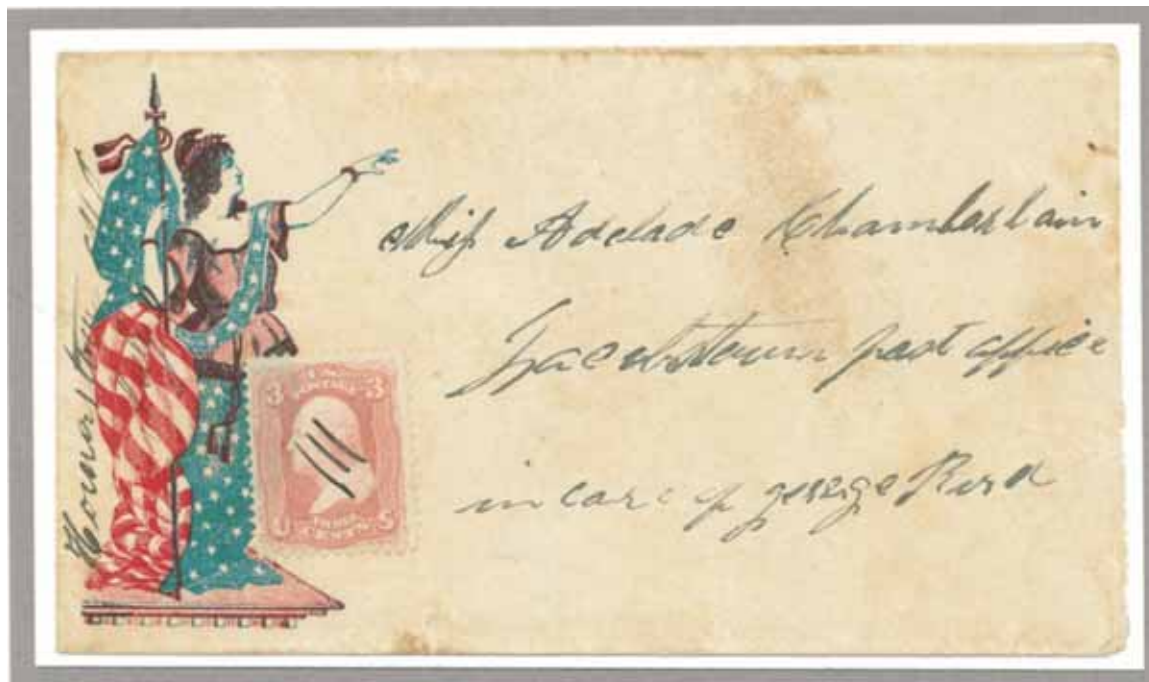 Miss Adelade Chamberlain
Jacobstown post office
in care of george Bird
3 3
U.S.
POSTAGE
U S
THREE
CENTS